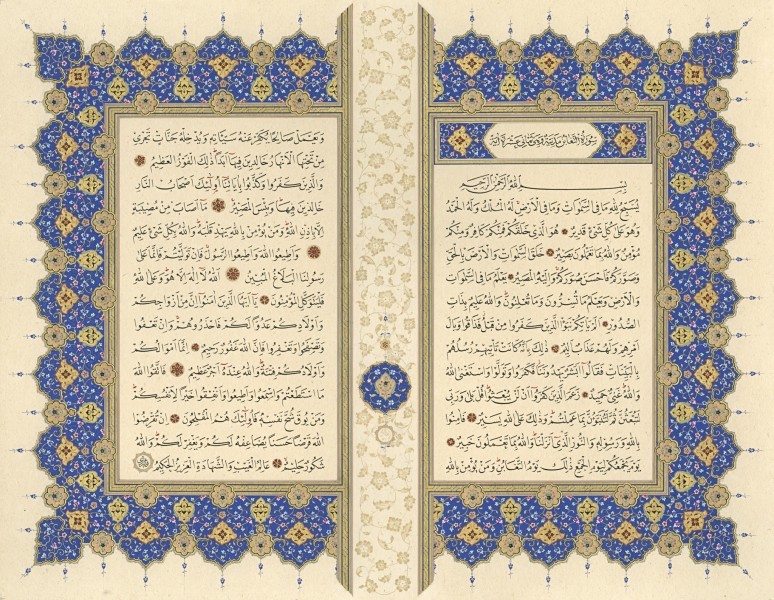 سورة التغابن مدنية وهي ثماني عشرة آية
بِسْمِ اللهِ الرَّحْمٰنِ الرَّحِيمِ
يُسَبِّحُ لِلهِ مَا فِي السَّمٰوَاتِ وَمَا فِي الْاَرْضِ لَهُ الْمُلْكُ وَلَهُ الْحَمْدُ
وَهُوَ عَلٰى كُلِّ شَيْءٍ قَدِيرٌ هُوَ الَّذِي خَلَقَكُمْ فَمِنْكُمْ كَافِرٌ وَمِنْكُمْ
مُؤْمِنٌ وَاللهُ بِمَا تَعْمَلُونَ بَصِيرٌ خَلَقَ السَّمٰوَاتِ وَالْاَرْضَ بِالْحَقِّ
وَصَوَّرَكُمْ فَاَحْسَنَ صُوَرَكُمْ وَاِلَيْهِ الْمَصِيرُ يَعْلَمُ مَا فِي السَّمٰوَاتِ
وَالْاَرْضِ وَيَعْلَمُ مَا تُسِرُّونَ وَمَا تُعْلِنُونَ وَاللهُ عَلِيمٌ بِذَاتِ
الصُّدُورِ اَلَمْ يَاْتِكُمْ نَبَؤُا الَّذِينَ كَفَرُوا مِنْ قَبْلُ فَذَاقُوا وَبَالَ
اَمْرِهِمْ وَلَهُمْ عَذَابٌ اَلِيمٌ ذٰلِكَ بِاَنَّهُ كَانَتْ تَاْتِيهِمْ رُسُلُهُمْ
بِالْبَيِّنَاتِ فَقَالُوا اَبَشَرٌ يَهْدُونَنَا فَكَفَرُوا وَتَوَلَّوْا وَاسْتَغْنَى اللهُ
وَاللهُ غَنِيٌّ حَمِيدٌ زَعَمَ الَّذِينَ كَفَرُوا اَنْ لَنْ يُبْعَثُوا قُلْ بَلٰى وَرَبِّي
لَتُبْعَثُنَّ ثُمَّ لَتُنَبَّؤُنَّ بِمَا عَمِلْتُمْ وَذٰلِكَ عَلَى اللهِ يَسِيرٌ فَاٰمِنُوا
بِاللهِ وَرَسُولِهِ وَالنُّورِ الَّذِي اَنْزَلْنَا وَاللهُ بِمَا تَعْمَلُونَ خَبِيرٌ
يَوْمَ يَجْمَعُكُمْ لِيَوْمِ الْجَمْعِ ذٰلِكَ يَوْمُ التَّغَابُنِ وَمَنْ يُؤْمِنْ بِاللهِ
وَيَعْمَلْ صَالِحًا يُكَفِّرْ عَنْهُ سَيِّئَاتِهِ وَيُدْخِلْهُ جَنَّاتٍ تَجْرِي
مِنْ تَحْتِهَا الْاَنْهَارُ خَالِدِينَ فِيهَا اَبَدًا ذٰلِكَ الْفَوْزُ الْعَظِيمُ
وَالَّذِينَ كَفَرُوا وَكَذَّبُوا بِاٰيَاتِنَا اُولٰئِكَ اَصْحَابُ النَّارِ
خَالِدِينَ فِيهَا وَبِئْسَ الْمَصِيرُ مَا اَصَابَ مِنْ مُصِيبَةٍ
اِلَّا بِاِذْنِ اللهِ وَمَنْ يُؤْمِنْ بِاللهِ يَهْدِ قَلْبَهُ وَاللهُ بِكُلِّ شَيْءٍ عَلِيمٌ
وَاَطِيعُوا اللهَ وَاَطِيعُوا الرَّسُولَ فَاِنْ تَوَلَّيْتُمْ فَاِنَّمَا عَلٰى
رَسُولِنَا الْبَلَاغُ الْمُبِينُ اَللهُ لَا اِلٰهَ اِلَّا هُوَ وَعَلَى اللهِ
فَلْيَتَوَكَّلِ الْمُؤْمِنُونَ يَا اَيُّهَا الَّذِينَ اٰمَنُوا اِنَّ مِنْ اَزْوَاجِكُمْ
وَاَوْلَادِكُمْ عَدُوًّا لَكُمْ فَاحْذَرُوهُمْ وَاِنْ تَعْفُوا
وَتَصْفَحُوا وَتَغْفِرُوا فَاِنَّ اللهَ غَفُورٌ رَحِيمٌ اِنَّمَا اَمْوَالُكُمْ
وَاَوْلَادُكُمْ فِتْنَةٌ وَاللهُ عِنْدَهُ اَجْرٌ عَظِيمٌ فَاتَّقُوا اللهَ
مَا اسْتَطَعْتُمْ وَاسْمَعُوا وَاَطِيعُوا وَاَنْفِقُوا خَيْرًا لِاَنْفُسِكُمْ
وَمَنْ يُوقَ شُحَّ نَفْسِهِ فَاُولٰئِكَ هُمُ الْمُفْلِحُونَ اِنْ تُقْرِضُوا
اللهَ قَرْضًا حَسَنًا يُضَاعِفْهُ لَكُمْ وَيَغْفِرْ لَكُمْ وَاللهُ
شَكُورٌ حَلِيمٌ عَالِمُ الْغَيْبِ وَالشَّهَادَةِ الْعَزِيزُ الْحَكِيمُ